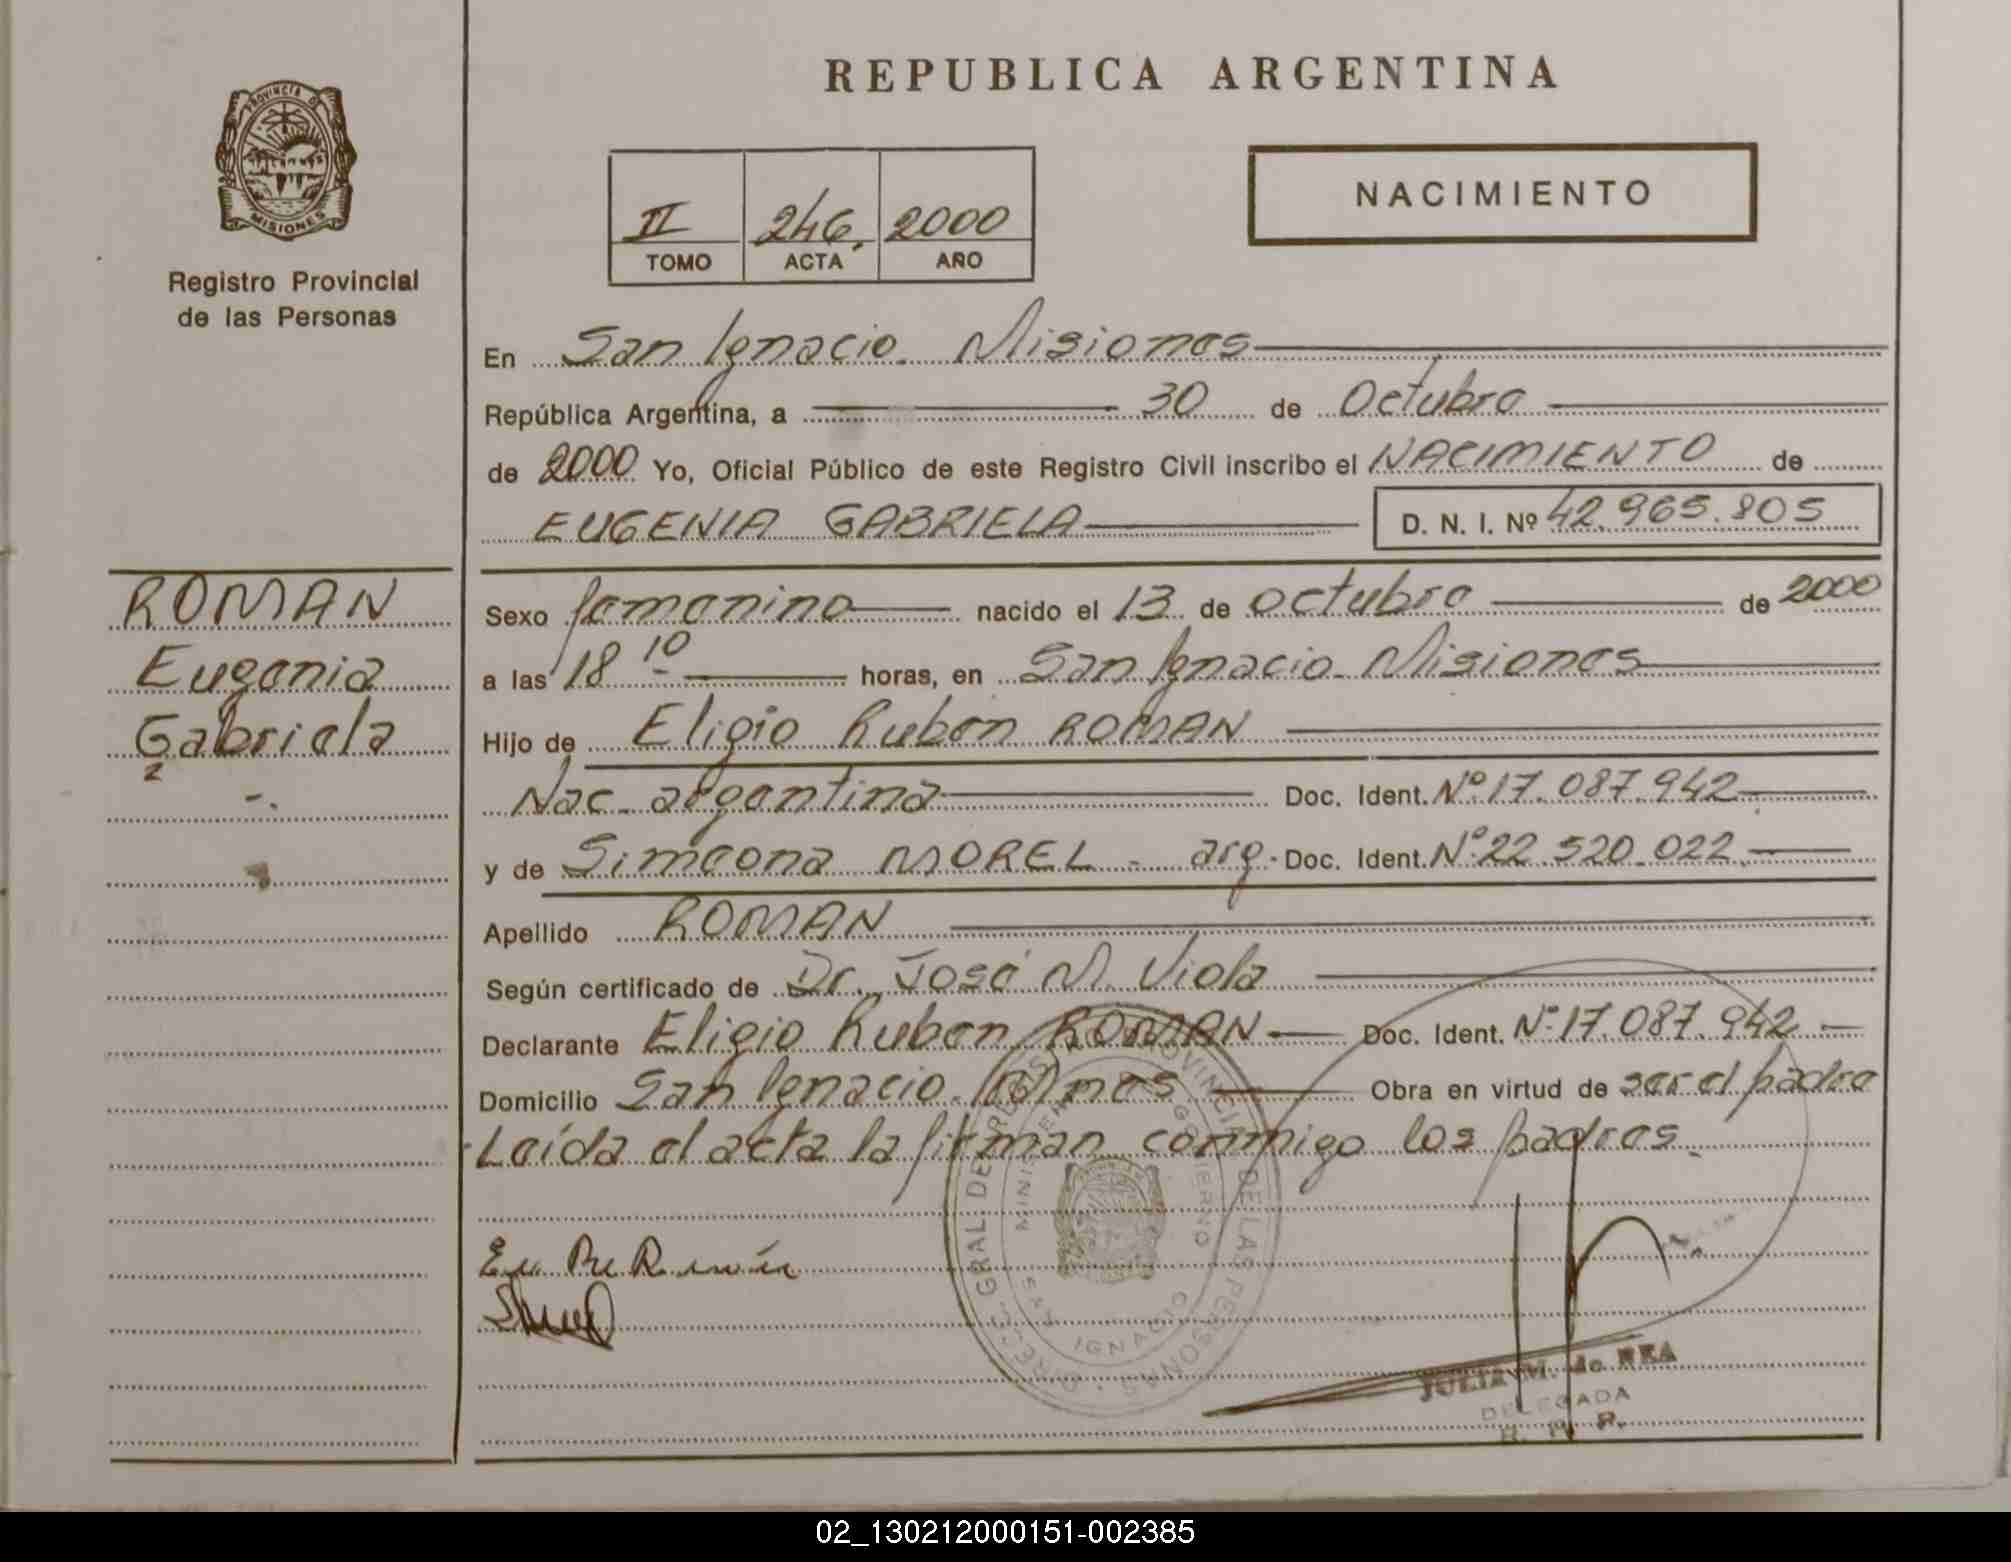 REPUBLICA ARGENTINA
PROVINCIA DE
MISIONES
Registro Provincial
de las Personas
II 246. 2000
TOMO ACTA AÑO
NACIMIENTO
En San Ignacio Misiones
República Argentina, a 30 de Octubre
de 2000 Yo, Oficial Público de este Registro Civil inscribo el NACIMIENTO de
EUGENIA GABRIELA D. N. I. Nº 42.965.805
ROMAN
Eugenia
Gabriela
Sexo femenino nacido el 13 de octubre de 2000
a las 18 10 horas, en San Ignacio Misiones
Hijo de Eligio Ruben ROMAN
Nac. argentina Doc. Ident. Nº 17.087.942
y de Simeona MOREL - arg. Doc. Ident. Nº 22.520.022
Apellido ROMAN
Según certificado de Dr. José M. Viola
Declarante Eligio Ruben ROMAN Doc. Ident. Nº 17.087.942
Domicilio San Ignacio. Mnes Obra en virtud de ser el padre
Leída el acta la firman conmigo los padres.
DIRECC. GRAL DE REGISTRO PROVINCIAL DE LAS PERSONAS
MINISTERIO GOBIERNO
SAN IGNACIO
JULIA M. de REA
DELEGADA
R. P. P.
02_130212000151-002385